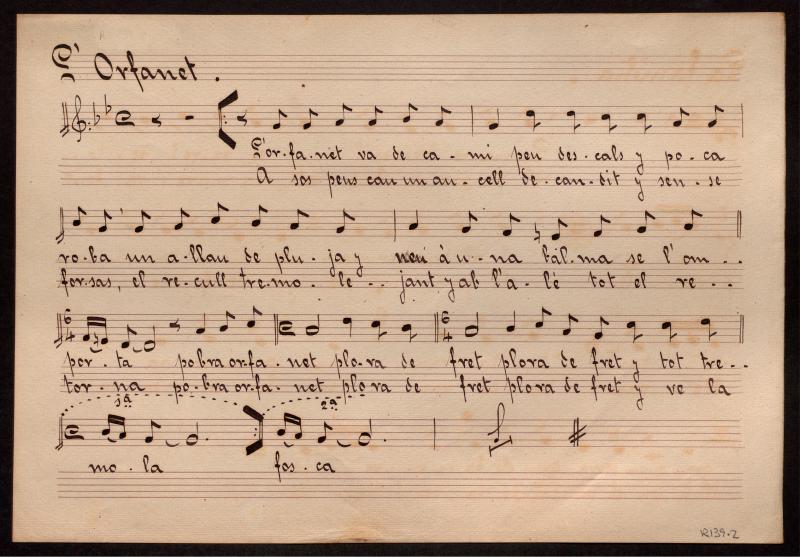 L' Orfanet.
L'or-fa-net va de ca-mi peu des-cals y po-ca
A sos peus cau un au-cell de-can-dit y sen-se
ro-ba un a-llau de plu-ja y neu à u-na bal-ma se l'om--
for-sas, el re-cull tre-mo-le--jant y ab l'a-lé tot el re--
6 4 6 4
por-ta pobra or-fa-net plo-ra de fret plora de fret y tot tre--
tor-na po-bra or-fa-net plo-ra de fret plora de fret y ve la
1ª 2ª
mo-la fos-ca
R139-2